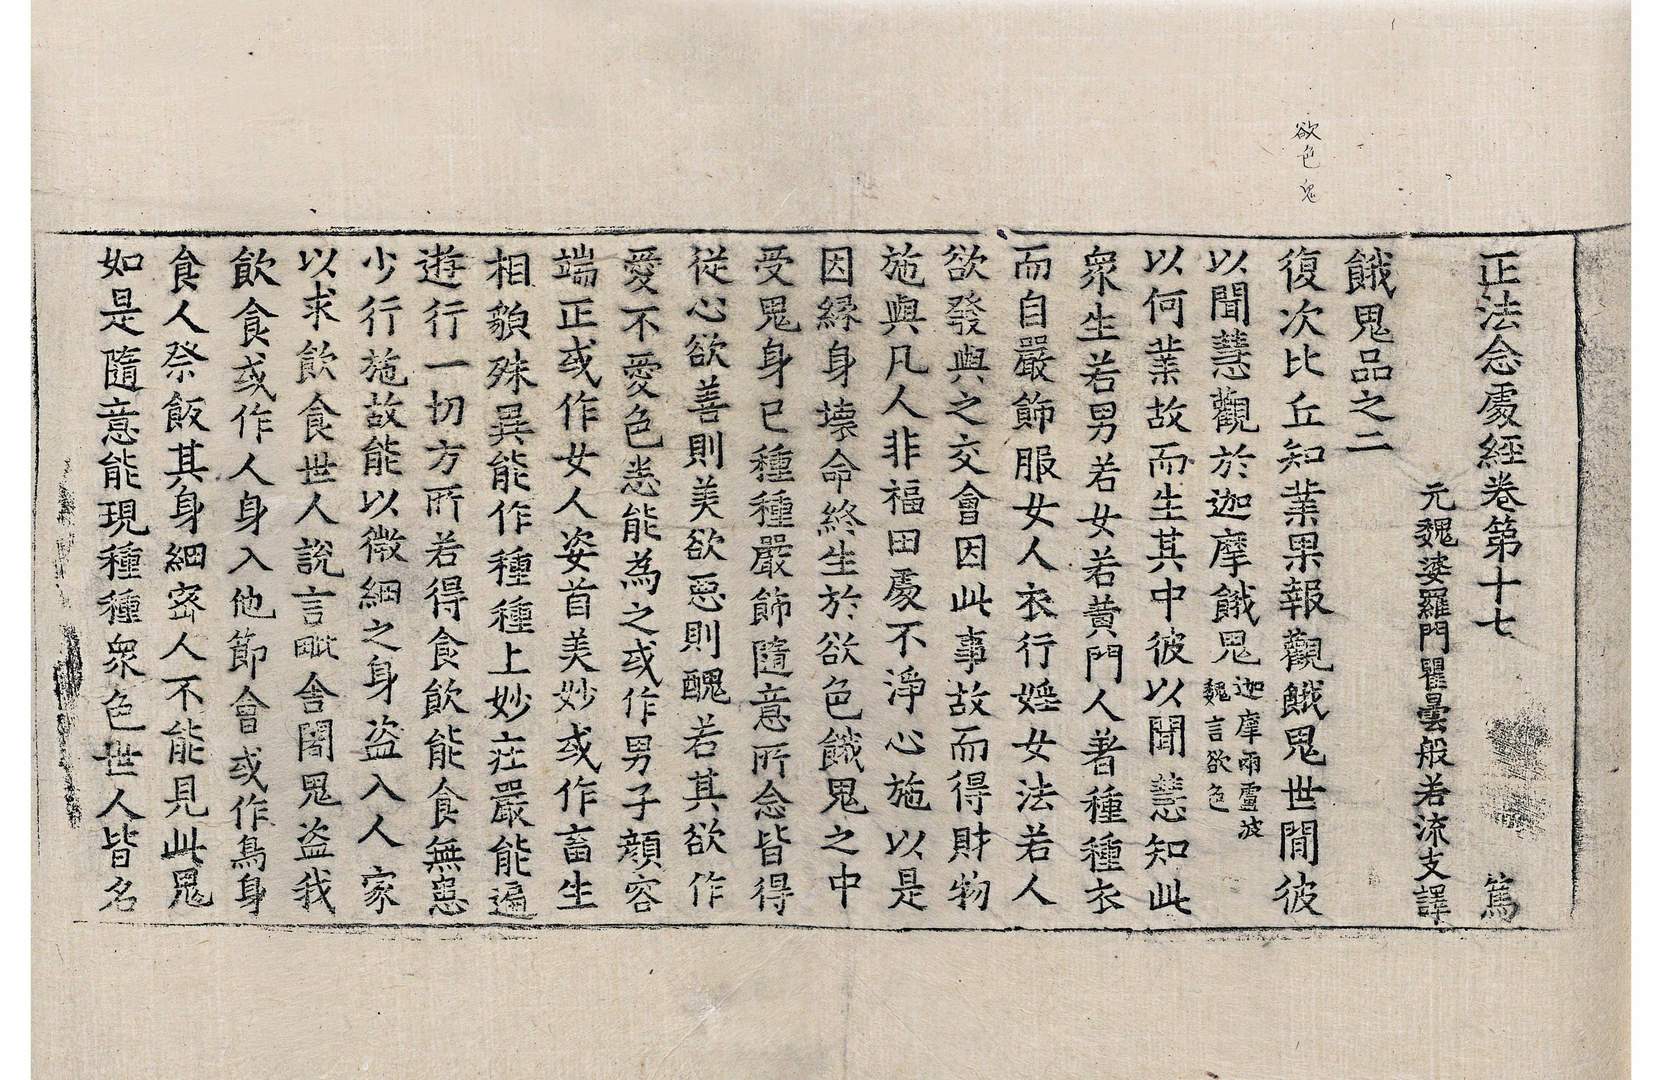 欲色鬼
正法念處經卷第十七 篤
元魏婆羅門瞿曇般若流支譯
餓鬼品之二
復次比丘知業果報觀餓鬼世間彼
以聞慧觀於迦摩餓鬼迦摩兩盧波魏言欲色
以何業故而生其中彼以聞慧知此
衆生若男若女若黃門人著種種衣
而自嚴飾服女人衣行婬女法若人
欲發與之交會因此事故而得財物
施與凡人非福田處不淨心施以是
因緣身壞命終生於欲色餓鬼之中
受鬼身已種種嚴飾隨意所念皆得
從心欲善則美欲惡則醜若其欲作
愛不愛色悉能為之或作男子顔容
端正或作女人姿首美妙或作畜生
相貌殊異能作種種上妙莊嚴能遍
遊行一切方所若得食飲能食無患
少行施故能以微細之身盜入人家
以求飲食世人說言毗舍闍鬼盜我
飲食或作人身入他節會或作鳥身
食人祭飯其身細密人不能見此鬼
如是隨意能現種種衆色世人皆名